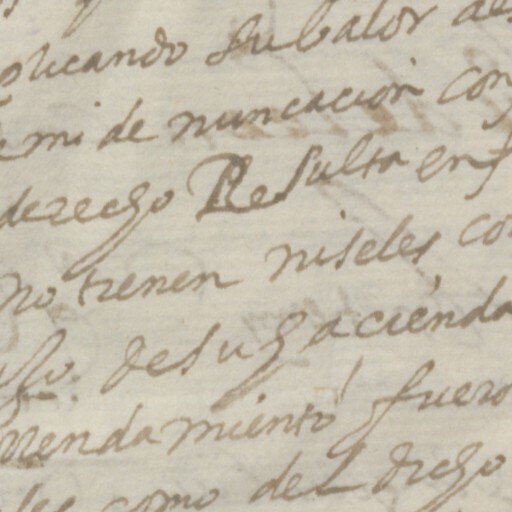 plicando su balor de
mi denunciacion con
derecho Resulta en f
no tienen ni seles co
dho. de su hacienda
rrendamiento fuero
les como del dicho